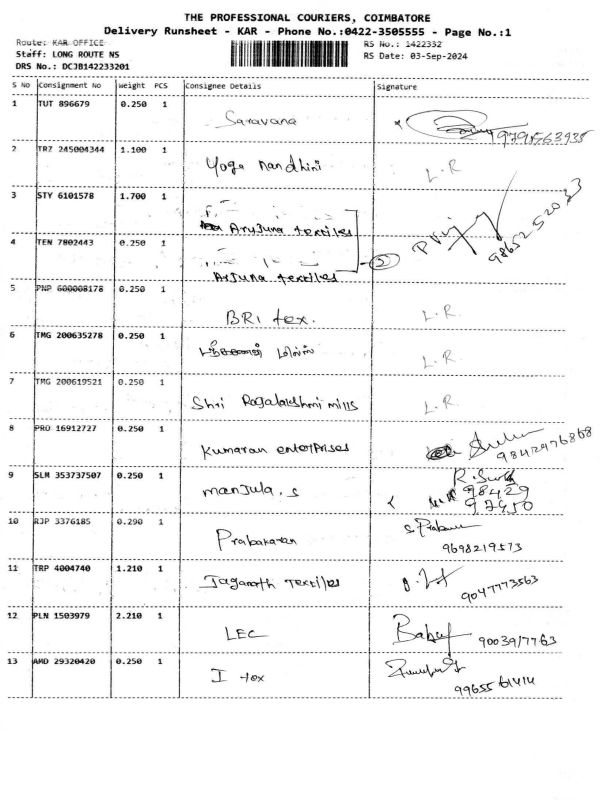 THE PROFESSIONAL COURIERS, COIMBATORE
Delivery Runsheet - KAR - Phone No.:0422-3505555 - Page No.:1
Route: KAR OFFICE RS No.: 1422332
Staff: LONG ROUTE NS RS Date: 03-Sep-2024
DRS No.: DCJB142233201
S No Consignment No Weight PCS Consignee Details Signature
1 TUT 896679 0.250 1 Saravana
2 TRZ 245004344 1.100 1 Yoga nandhini L.R
3 STY 6101578 1.700 1 Aryjuna textiles 9865252033
4 TEN 7802443 0.250 1 Arjuna textiles 5
5 PNP 600008178 0.250 1 BRI tex. L.R.
6 TMG 200635278 0.250 1 மில்ஸ் L.R.
7 TMG 200619521 0.250 1 Shri Ragalakshmi mills L.R.
8 PRO 16912727 0.250 1 Kumaran enterprises 9842976868
9 SLM 353737507 0.250 1 manjula.s 98429 97450
10 RJP 3376185 0.290 1 Prabakaran 9698219573
11 TRP 4004740 1.210 1 Jaganath textiles 9047773563
12 PLN 1503979 2.210 1 LEC Babuf 9003917763
13 AMD 29320420 0.250 1 I tex 9965561414